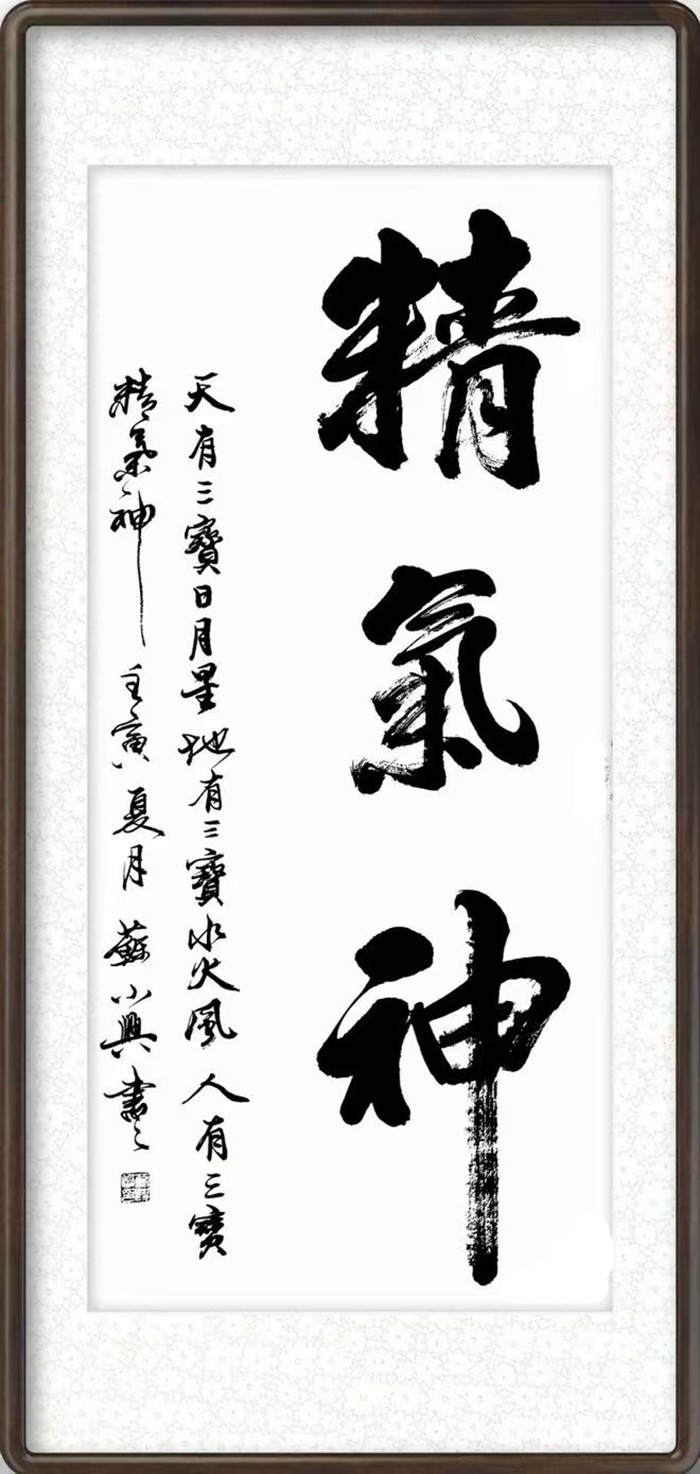 精氣神
天有三寶日月星地有三寶水火風人有三寶
精氣神 壬寅夏月 蘇小興書